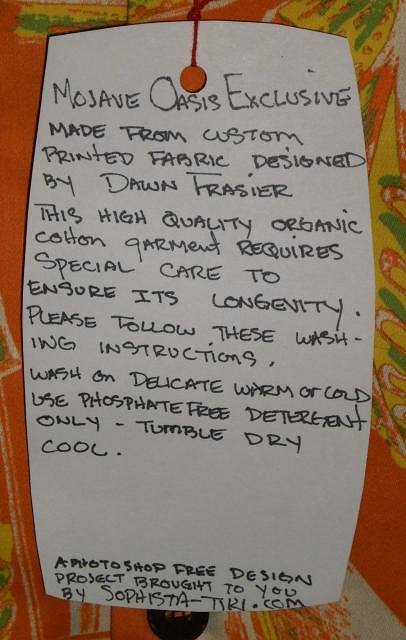 MOJAVE OASIS EXCLUSIVE
MADE FROM CUSTOM
PRINTED FABRIC DESIGNED
BY DAWN FRASIER
THIS HIGH QUALITY ORGANIC
COTTON GARMENT REQUIRES
SPECIAL CARE TO
ENSURE ITS LONGEVITY.
PLEASE FOLLOW THESE WASH-
ING INSTRUCTIONS.
WASH ON DELICATE WARM OR COLD
USE PHOSPHATE FREE DETERGENT
ONLY - TUMBLE DRY
COOL.
A PHOTOSHOP FREE DESIGN
PROJECT BROUGHT TO YOU
BY SOPHISTA-TIKI.COM